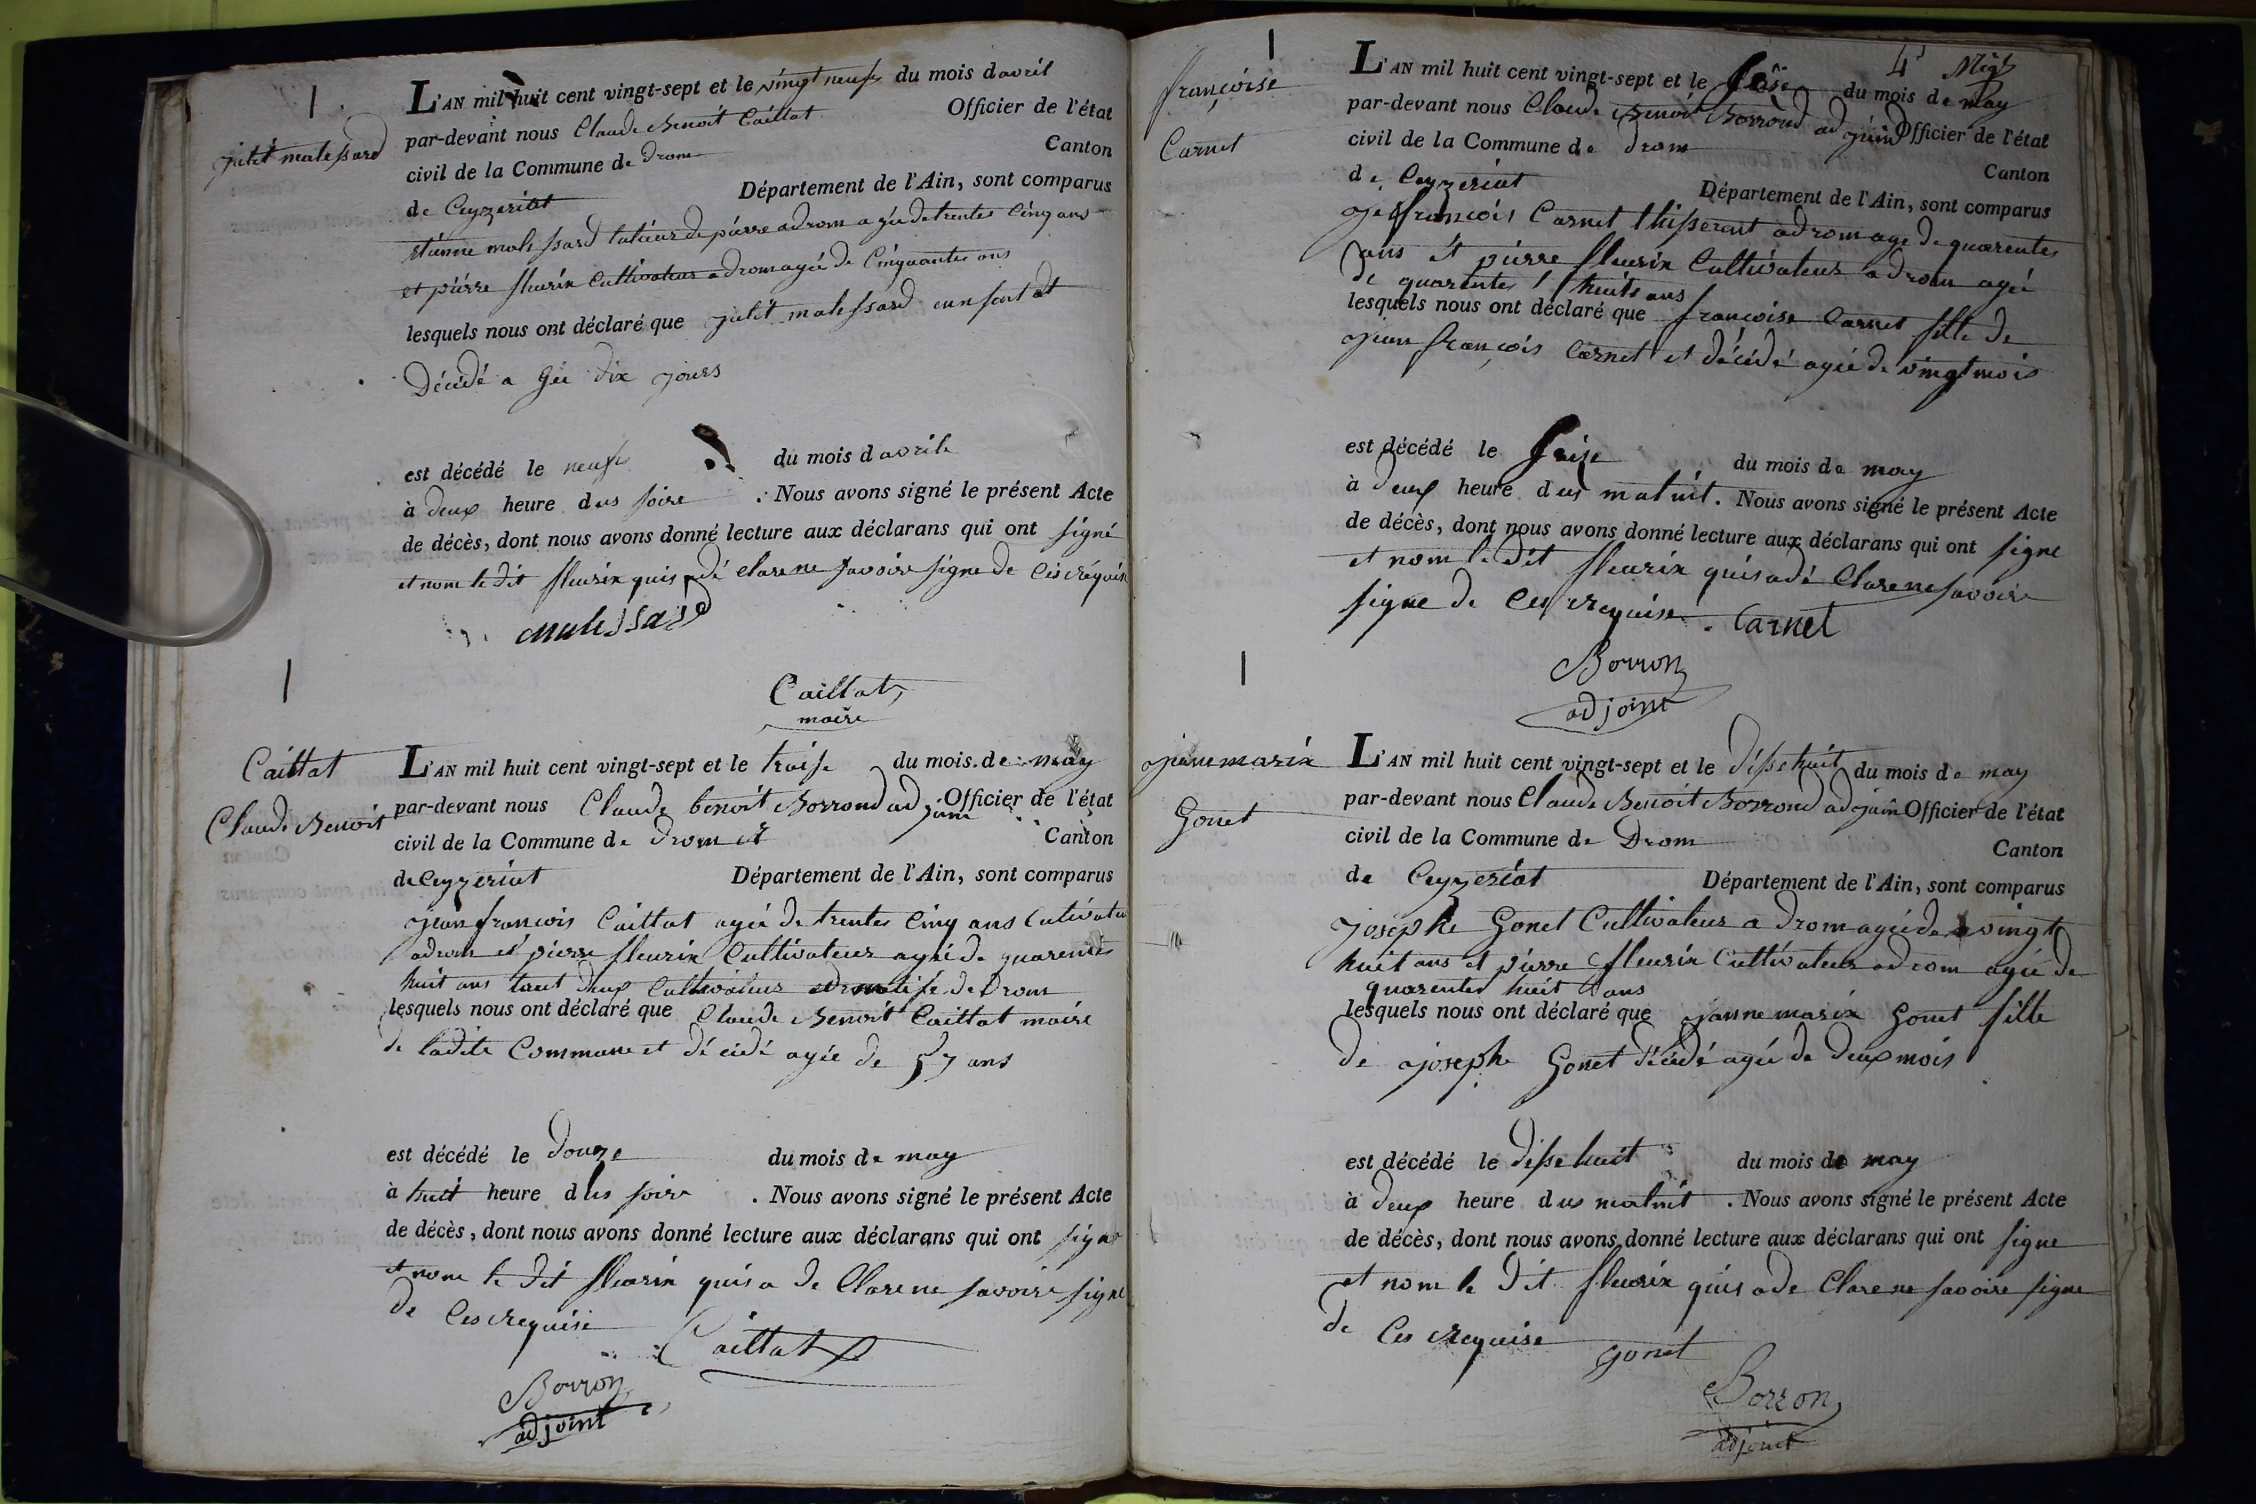 julit malessard
L'AN mil huit cent vingt-sept et le vingt neufs du mois davril
par-devant nous Claude Benoit Caillat Officier de l'état
civil de la Commune de drom Canton
de Ceyzeriat Département de l'Ain, sont comparus
malessard de pierre adrom agée de trentes Cinq ans
et piérre fleurin Cultivateur adrom agée de Cinquantes ans
lesquels nous ont déclaré que julit malessard enfant et
Décédé a Géé dix jours
est décédé le neufs du mois davrile
à deux heure dus soire . Nous avons signé le présent Acte
de décès, dont nous avons donné lecture aux déclarans qui ont signé
et nom le dit fleurin quis a dé clare ne savoire signe de Ces réquis
malessard
Caillat
maire
Caillat
Claude Benoit
L'AN mil huit cent vingt-sept et le traise du mois de may
par-devant nous Claude benoit Borrond ad join Officier de l'état
civil de la Commune de drom et Canton
de Ceyzeriat Département de l'Ain, sont comparus
jean francois Caillat agée de trentes Cinq ans Cutivateu
adrom et pierre fleurin Cultivateur agée de quarentes
huit ans tout deux Cultivateur de Drom
lesquels nous ont déclaré que Claude Benoit Caillat maire
de ladite Commune et décédé agée de 57 ans
est décédé le douze du mois de may
à huit heure dus soire . Nous avons signé le présent Acte
de décès, dont nous avons donné lecture aux déclarans qui ont signe
et nom le dit fleurin quis a de Clare ne savoire signe
de Ces requise
Caillat
Borron
adjoint
4e
françoise
Carnet
L'AN mil huit cent vingt-sept et le saise du mois de may
par-devant nous Claude Benoit Borrond ad join Officier de l'état
civil de la Commune de drom Canton
de Ceyzeriat Département de l'Ain, sont comparus
francois Carnet thisserent adrom age de quarentes
ans et piérre fleurin Cultivateur adrom agée
de quarentes huits ans
lesquels nous ont déclaré que francoise Carnet fille de
jean françois Carnet et décédé agée de vingt mois
est décédé le saise du mois de may
à deux heure dus matnit. Nous avons signé le présent Acte
de décès, dont nous avons donné lecture aux déclarans qui ont signe
et nom le dit fleurin quis a dé Clare ne savoire
signe de Ces requise. Carnet
Borron
adjoint
janne marix
Gonet
L'AN mil huit cent vingt-sept et le disse huit du mois de may
par-devant nous Claude Benoit Borrond adjoin Officier de l'état
civil de la Commune de Drom Canton
de Ceyzeriat Département de l'Ain, sont comparus
josephe Gonet Cultivateur a drom agée de vingt
huit ans et piérre fleurin Cultivateur adrom agée de
quarentes huit ans
lesquels nous ont déclaré que janne marix Gonet fille
de josephe Gonet décédé agée de deux mois
est décédé le disse huit du mois de may
à deux heure dus matnit . Nous avons signé le présent Acte
de décès, dont nous avons donné lecture aux déclarans qui ont signe
et nom le dit fleurix quis a de Clare ne savoire signe
de Ces requise
gonet
Borron
adjoint